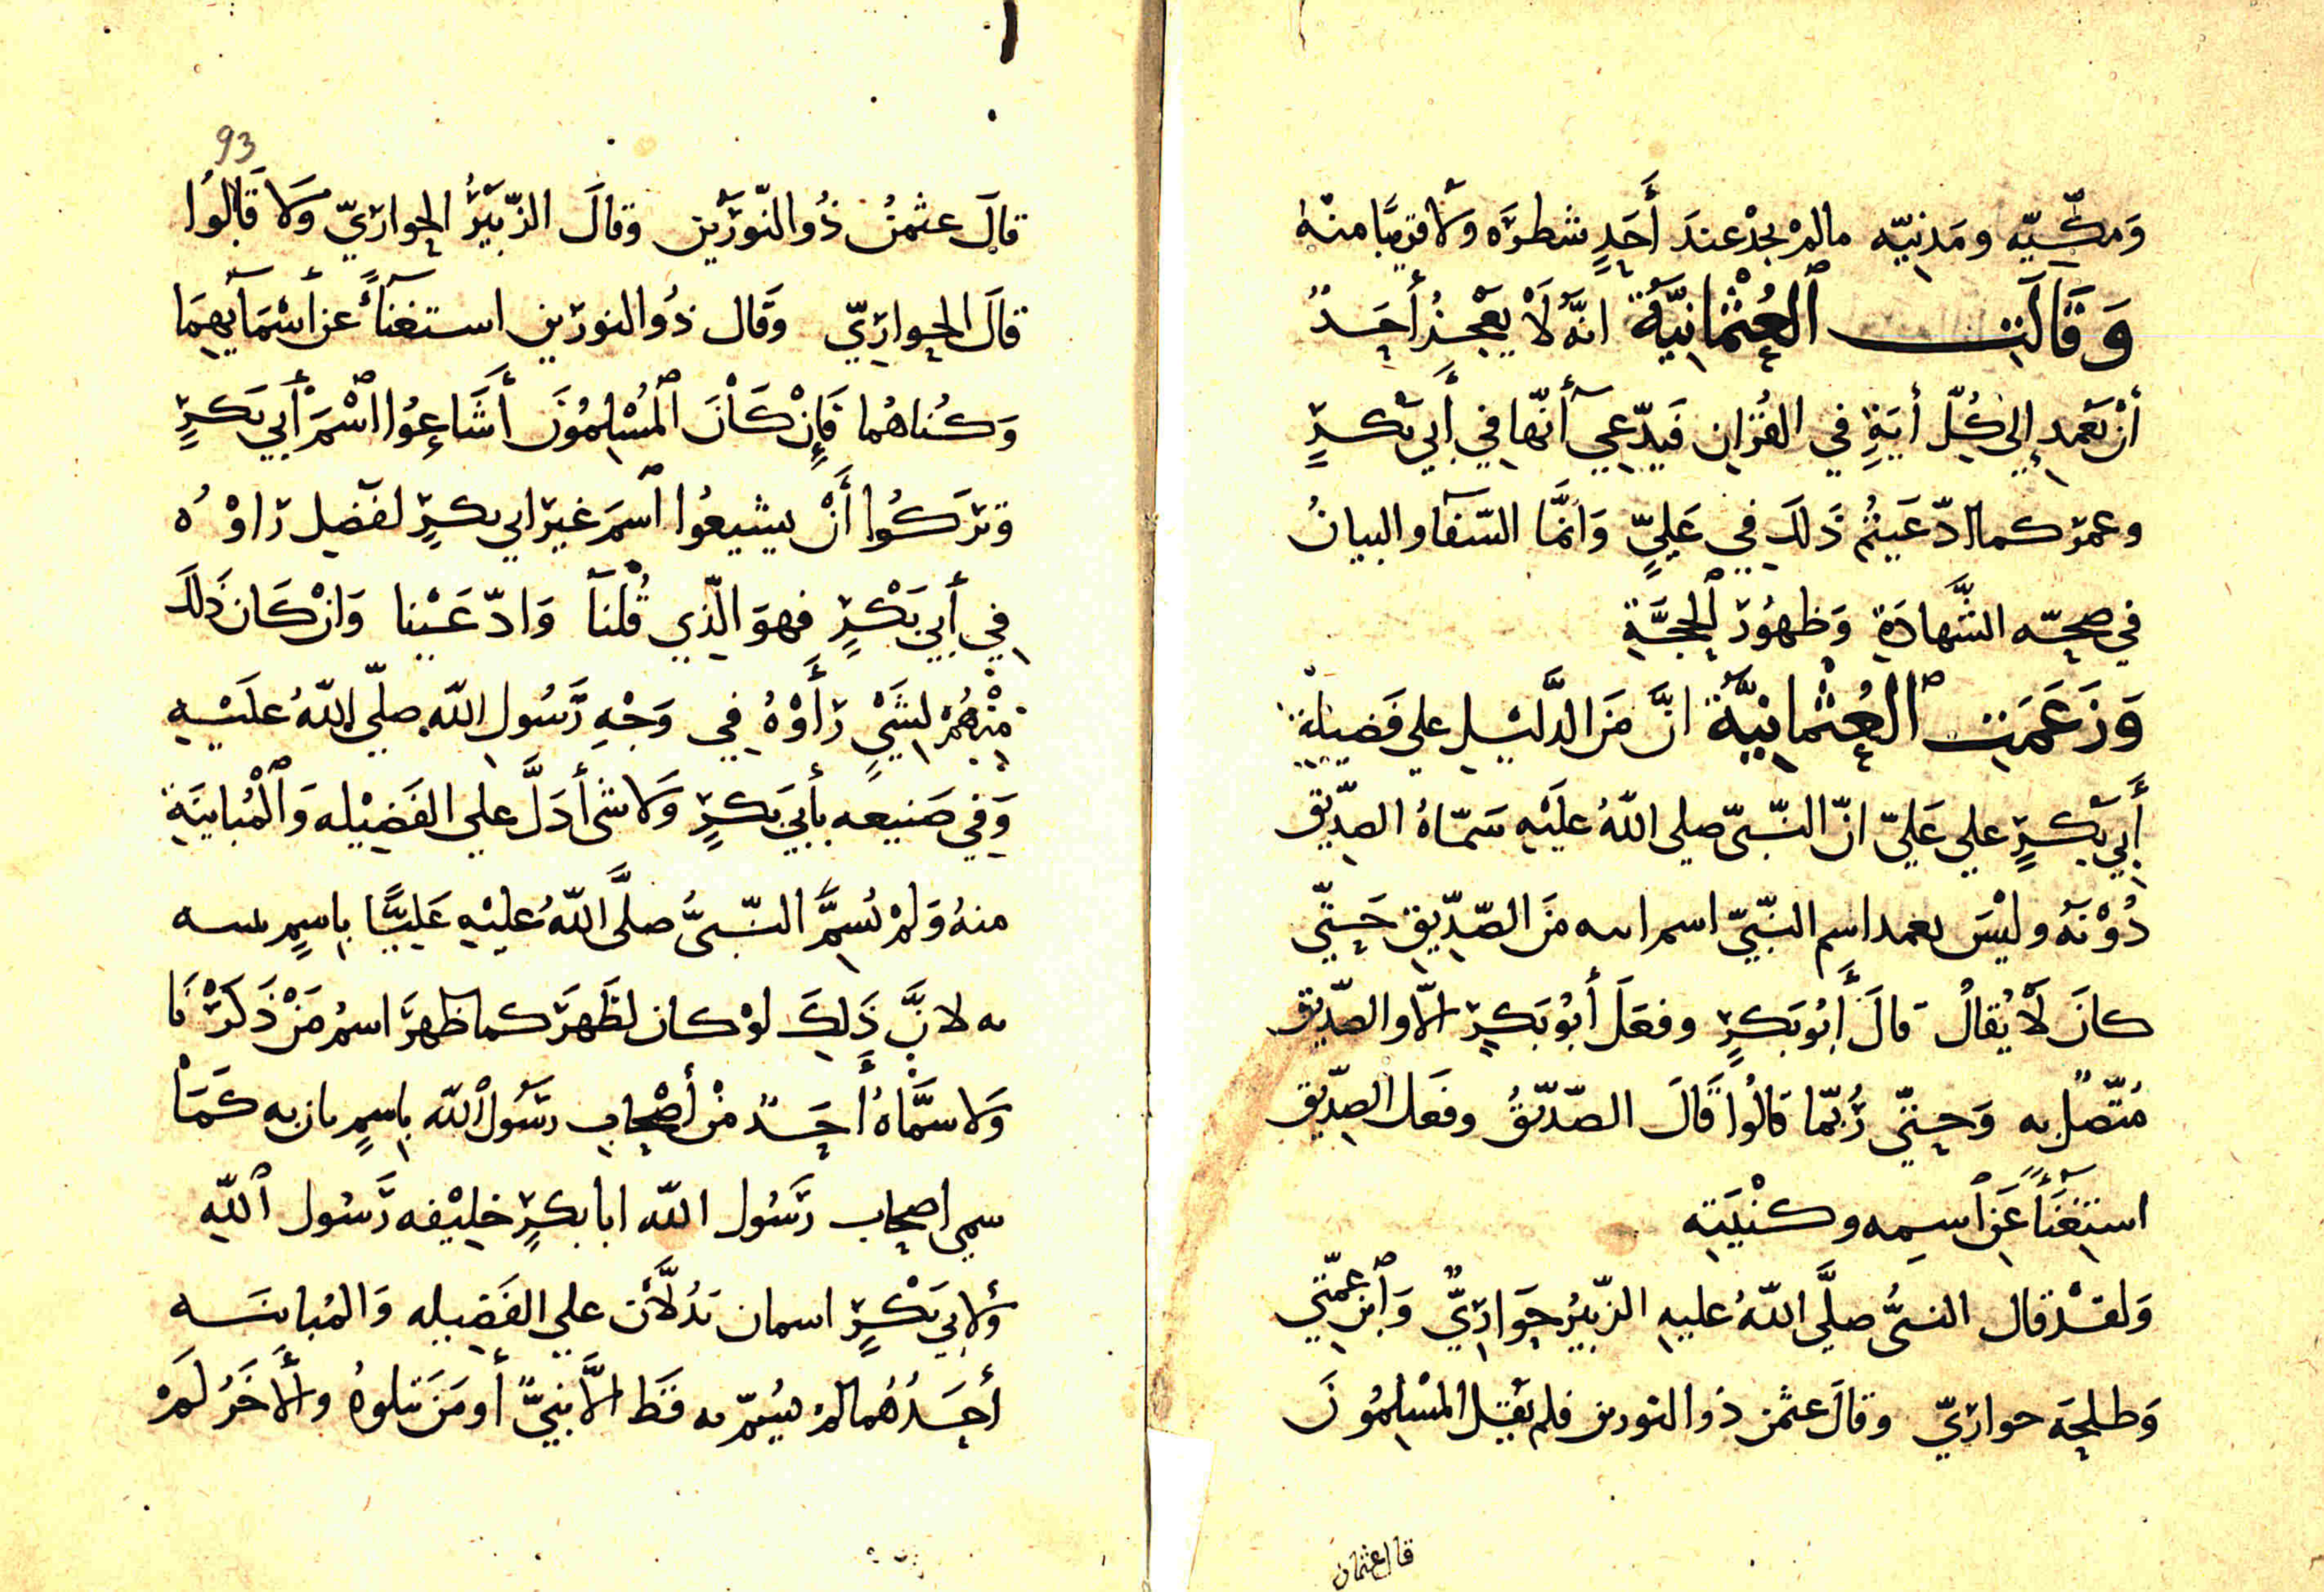 وَمكّيّه ومَدنيّه مالمْ يجدْ عندَ أَحَدٍ شطرَه وَلا قريبًا منْه
وَقَالَت العُثْمانِيّة انّه لَا يَعْجزُ أَحَدٌ
أنْ يَعْمِد إلى كُلّ أيَةٍ في القُرْانِ فَيدّعي أنّها في أَبي بَكرٍ
وعمرَ كما ادّعَيْتُم ذَلكَ في عَليٍّ وَانَّما الشّفآ والبيانُ
في صحّه الشَّهادَةِ وَظهُور الحجَّةِ
وَزَعَمَت العُثْمانِيَّة انَّ مَنَ الدَّليْل علي فَضيلة
أَبي بَكرٍ علي عَليّ انّ النّبيّ صلى اللهُ عليَه سَمّاهُ الصدّيق
دُوْنَهُ وليْسَ بعد اسم النّبيّ اسم اسه مَنَ الصّدّيقِ حَتّي
كانَ لَا يُقالُ قالَ أَبُو بَكرٍ وفعَلَ أَبُو بَكرٍ الّا والصدّيق
مُتّصل به وَحتّي رُبّما قالُوا قَالَ الصّدّيقُ وفَعَل الصدّيق
استغنَآءً عَن اسمِه وكنْيَتِه
وَلقدْ قال النبيُّ صلَّي اللهُ عليه الزّبيرُ حَوَاريّ وَابن عمّتي
وَطلحة حواريّ وقالَ عثمن ذو النورين فلم يقل المسْلِمُونَ
قال عثمان
93
قالَ عثمنُ ذُو النّورَين وقالَ الزّبيَرُ الحواريّ وَلا قَالُوا
قالَ الحوارِيّ وَقال ذُو النورَين استغنآءً عن أَسْمَآئهِمَا
وَكُناهُما فَإنْ كَانَ المُسْلِمُونَ أَشَاعُوا اسْمَ أَبي بَكرٍ
وَتركُوا أَنْ يشيعُوا اسمَ غيرَ ابي بكرٍ لفَضل رَاوْهُ
في أَبي بَكْرٍ فهوَ الّذِي قُلنَا وَادّعَيْنا وَانْ كَانَ ذَلكَ
منْهُمْ لِشَيْ رَأَوْهُ فِي وَجْهِ رَسُولِ اللهِ صلّي اللهُ علَيْه
وَفي صَنيعه بأَبي بَكرٍ وَلا شئ أَدَلَّ علي الفَضيْله وَالْمُبايَنَةِ
منهُ وَلمْ يُسمِّ النّبيُّ صلَّي اللهُ عليْهِ عَليًّا بِاسمٍ يبينه
به لانَّ ذَلكَ لوْ كان لظَهرَ كما ظهرَ اسمُ مَنْ ذَكَرْنَا
وَلا سمَّاهُ أَحَدٌ منْ أَصْحابِ رسُول الله بِاسمٍ بان به كَمَا
سمي اصحاب رَسُول الله ابا بكرٍ خليْفه رَسُول اللهِ
وَلابي بَكْرٍ اسمان يَدُلَّان علي الفَضيله وَالمُباينَه
أَحَدُهُما لمْ يُسمّ به قَط الّا نبيّ أو مَنَ يتلوهُ والأَخَرُ لَمْ